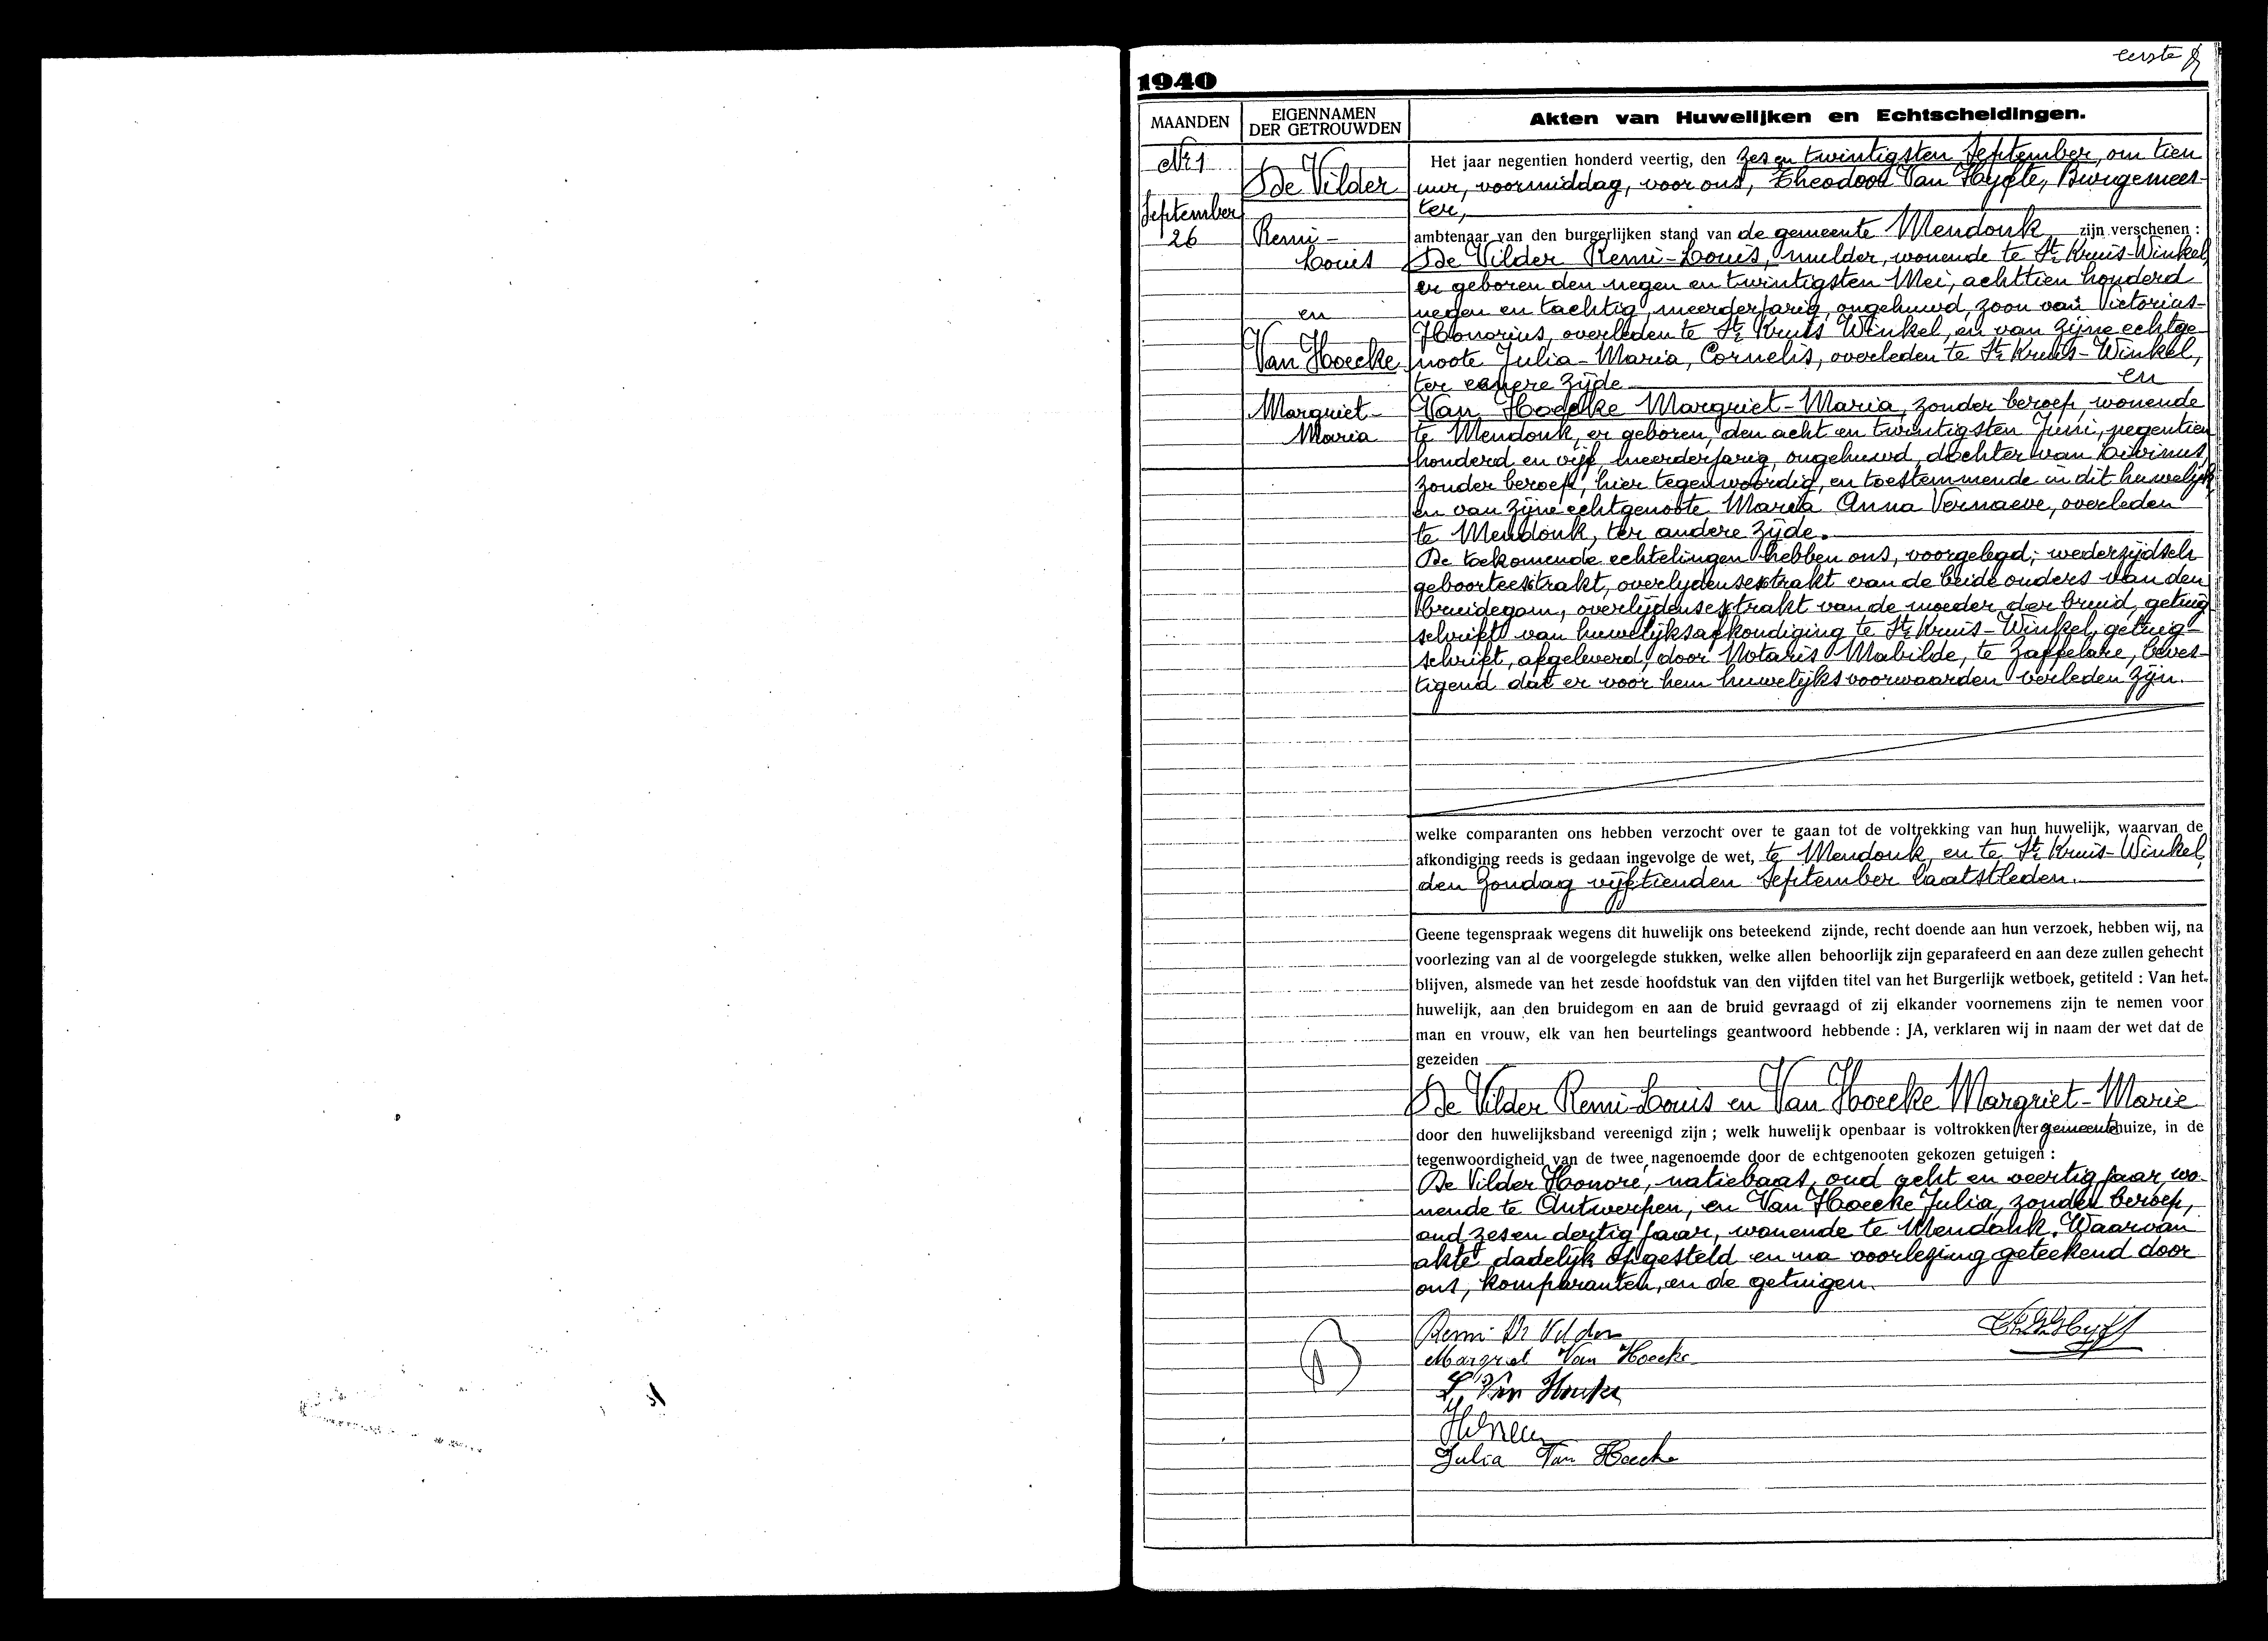 eerste
1940
MAANDEN
EIGENNAMEN
DER GETROUWDEN
Akten van Huwelijken en Echtscheidingen.
Nr 1
September
26
De Vilder
Remi-
Louis
en
Van Hoecke
Margriet-
Maria
Het jaar negentien honderd veertig, den zes en twintigsten September, om tien
uur, voormiddag, voor ons, Theodoor Van Hyfte, Burgemees-
ter,
ambtenaar van den burgerlijken stand van de gemeente Mendonk zijn verschenen :
De Vilder Remi-Louis, mulder, wonende te St. Kruis-Winkel,
er geboren den negen en twintigsten Mei, achttien honderd
negen en tachtig, meerderjarig, ongehuwd, zoon van Victorius-
Honorius, overleden te St. Kruis Winkel, en van zijne echtge
noote Julia-Maria, Cornelis, overleden te St. Kruis-Winkel,
ter eenere zijde en
Van Hoecke Margriet-Maria, zonder beroep, wonende
te Mendonk, er geboren, den acht en twintigsten Juni, negentien
honderd en vijf, meerderjarig, ongehuwd, dochter van Livinus,
zonder beroep, hier tegenwoordig, en toestemmende in dit huwelijk,
en van zijne echtgenoote Maria Anna Vernaeve, overleden
te Mendonk, ter andere zijde.
De toekomende echtelingen hebben ons, voorgelegd; wederzijdsch
geboorteextrakt, overlydensextrakt van de beide ouders van den
bruidegom, overlijdensextrakt van de moeder der bruid, getuig
schrift van huwelijksafkondiging te St. Kruis-Winkel, getuig-
schrift, afgeleverd, door Notaris Mabilde, te Zaffelare, beves-
tigend dat er voor hem huwelijksvoorwaarden verleden zijn.
welke comparanten ons hebben verzocht over te gaan tot de voltrekking van hun huwelijk, waarvan de
afkondiging reeds is gedaan ingevolge de wet, te Mendonk en te St. Kruis-Winkel,
den Zondag vijftienden September laatstleden.
Geene tegenspraak wegens dit huwelijk ons beteekend zijnde, recht doende aan hun verzoek, hebben wij, na
voorlezing van al de voorgelegde stukken, welke allen behoorlijk zijn geparafeerd en aan deze zullen gehecht
blijven, alsmede van het zesde hoofdstuk van den vijfden titel van het Burgerlijk wetboek, getiteld : Van het
huwelijk, aan den bruidegom en aan de bruid gevraagd of zij elkander voornemens zijn te nemen voor
man en vrouw, elk van hen beurtelings geantwoord hebbende : JA, verklaren wij in naam der wet dat de
gezeiden
De Vilder Remi-Louis en Van Hoecke Margriet-Marie
door den huwelijksband vereenigd zijn ; welk huwelijk openbaar is voltrokken ter gemeentehuize, in de
tegenwoordigheid van de twee nagenoemde door de echtgenooten gekozen getuigen :
De Vilder Honoré, natiebaas, oud acht en veertig jaar, wo-
nende te Antwerpen, en Van Hoecke Julia, zonder beroep,
oud zesen dertig jaar, wonende te Mendonk. Waarvan
akte, dadelijk opgesteld en na voorlezing geteekend door
ons, komparanten, en de getuigen.
Remi De Vilder
Margriet Van Hoecke
L. Van Hoecke
Julia Van Hoecke